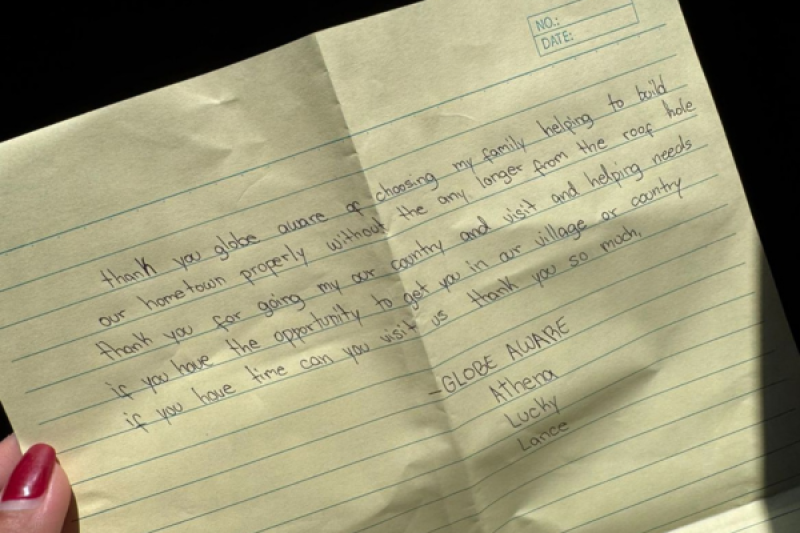 NO.:
DATE:
thank you globe aware of choosing my family helping to build
our hometown properly without the any longer from the roof hole
thank you for going my our country and visit and helping needs
if you have the opportunity to get you in our village or country
if you have time can you visit us thank you so much,
-GLOBE AWARE
Athena
Lucky
Lance